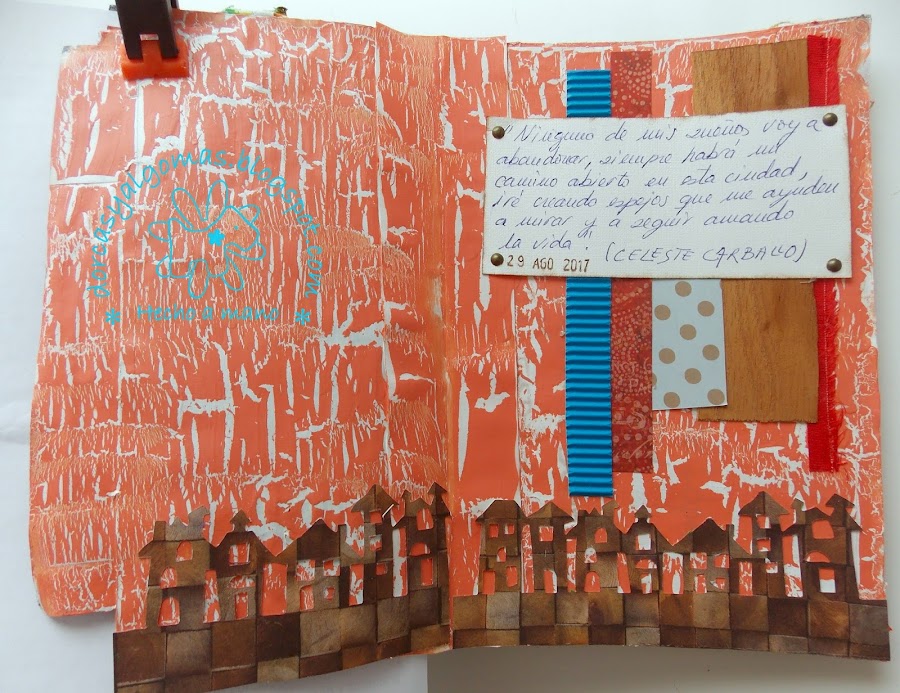 dorcasyalgomas.blogspot.com
* Hecho a mano *
"Ninguno de mis sueños voy a
abandonar, siempre habrá un
camino abierto en esta ciudad,
iré cuando espejos que me ayuden
a mirar y a seguir amando
la vida" (CELESTE CARBALLO)
29 AGO 2017